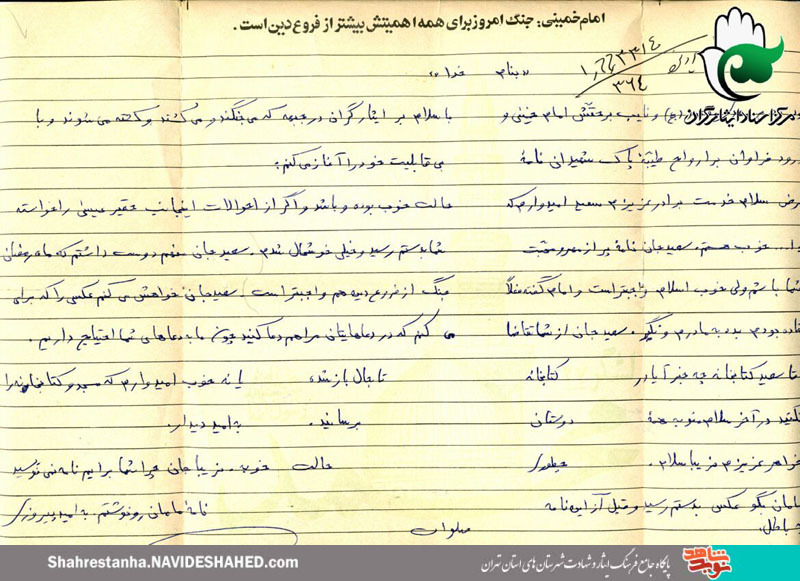 امام خمینی: جنگ امروز برای همه اهمیتش بیشتر از فروع دین است.
مرکز اسناد ایثارگران
«بنام خدا»
۳۶۴
و نایب برحقش امام خمینی و با سلام بر ایثارگران در جبهه که می جنگند و می کُشند و کشته می شوند و با
درود فراوان بر ارواح طیبهٔ پاک شهیدان نامهٔ بی قابلیت خود را آغاز می کنم:
عرض سلام خدمت برادر عزیزم سعید امیدوارم که حالت خوب بوده و باشد و اگر از احوالات اینجانب حقیر عیسی را خواسته
خوب هستم. سعید جان نامهٔ پر از مهر و محبت شما بدستم رسید و خیلی خوشحال شدم. سعید جان منهم دوست داشتم که ماه رمضان
شما باشم ولی خوب اسلام واجبتر است و امام گفته فعلاً جنگ از فروع دین هم واجبتر است. سعید جان خواهش می کنم عکسی را که برای
بودم بده به مادرم و سعید جان از شما تقاضا می کنم که در دعاهایتان مرا هم دعا کنید چون ما به دعاهای شما احتیاج داریم.
سعید کتابخانه چه خبر آیا در کتابخانه تا بحال باز شده یا نه خوب امیدوارم که مسجد و کتابخانه را
نکنید در آخر سلام منو به همهٔ دوستان برسانید. به امید دیدار.
خواهر عزیزم فریبا سلام. حالت خوبه. فریبا جان چرا شما برایم نامه نمی نویسید
مامان بگو عکس بدستم رسید و قبل از این نامه نامهٔ مامان رو نوشتم. به امید پیروزی
باطل.
Shahrestanha.NAVIDESHAHED.com
پایگاه جامع فرهنگ ایثار و شهادت شهرستان های استان تهران
نوید شاهد